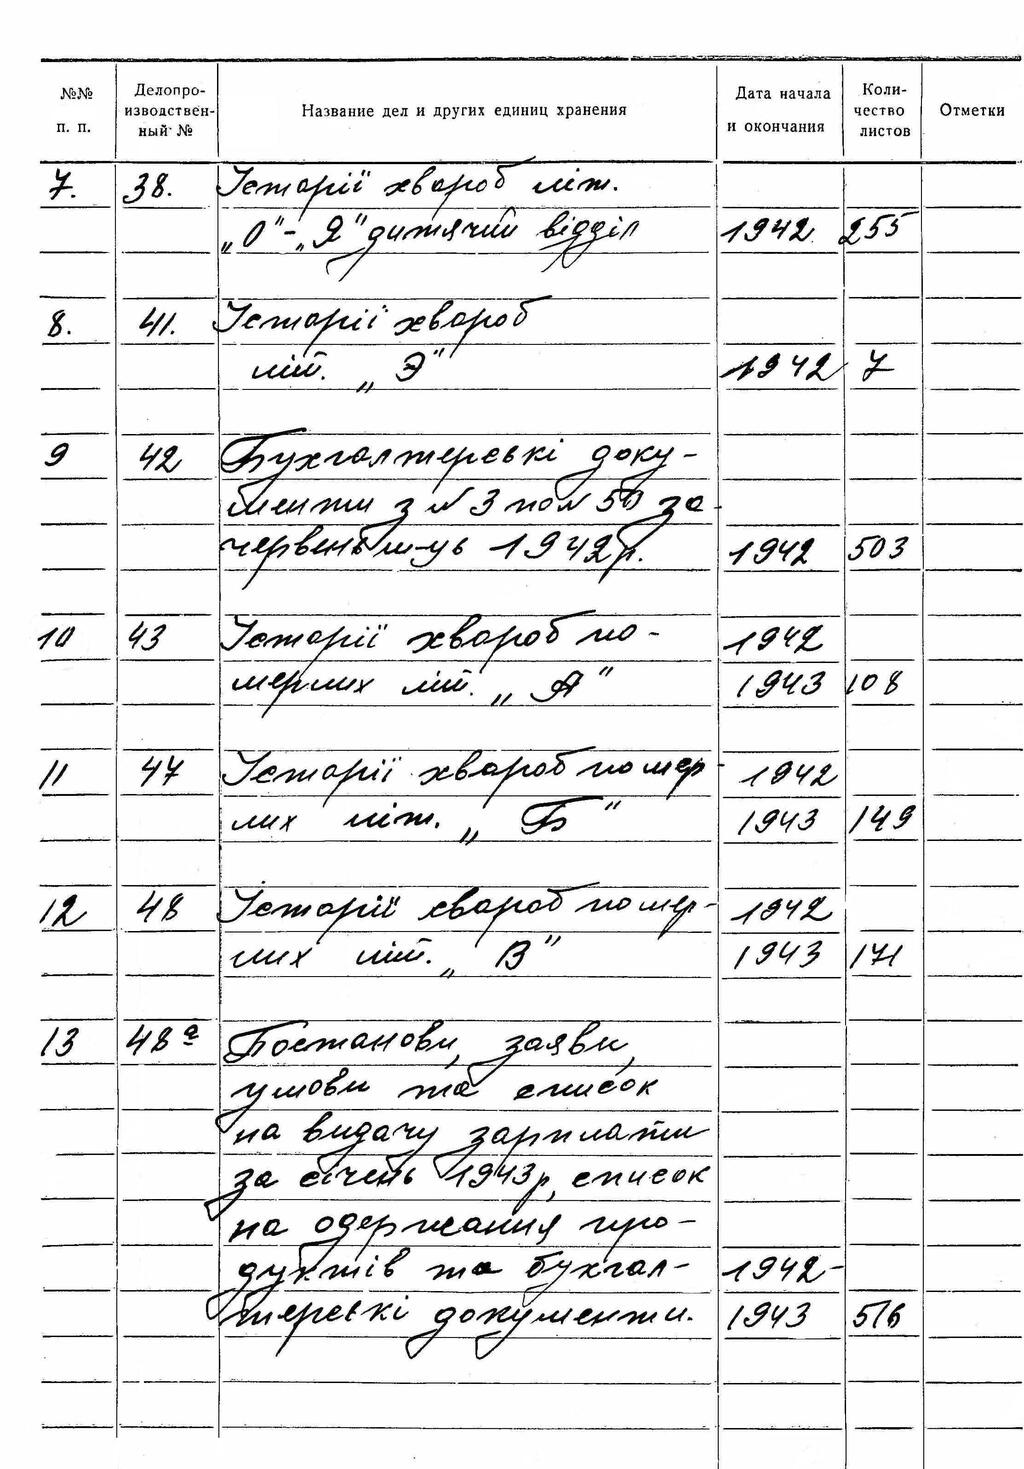 №№ п. п. Делопро- изводствен- ный № Название дел и других единиц хранения Дата начала и окончания Коли- чество листов Отметки
7. 38. Історії хвороб літ.
„О"-„Я" дитячий відділ 1942 255
8. 41. Історії хвороб
літ. „Э" 1942 7
9 42 Бухгалтерські доку-
менти з №3 по №50 за
червень м-ць 1942р. 1942 503
10 43 Історії хвороб по- 1942
мерлих літ. „А" 1943 108
11 47 Історії хвороб помер- 1942
лих літ. „Б" 1943 149
12 48 Історії хвороб помер- 1942
лих літ. „В" 1943 171
13 48а Постанови, заяви,
умови та список
на видачу зарплати
за січень 1943р, список
на одержання про-
дуктів та бухгал- 1942-
терські документи. 1943 516